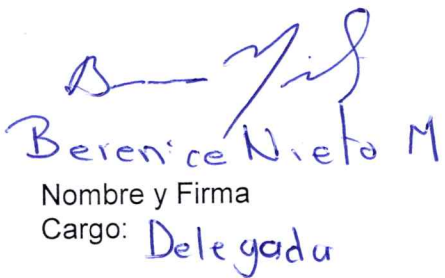 Berenice Nieto M
Nombre y Firma
Cargo: Delegada